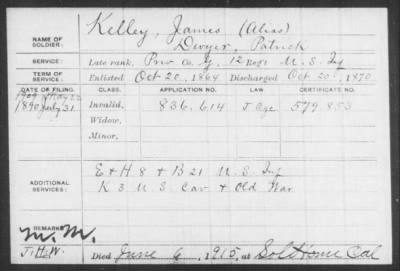 NAME OF SOLDIER: Kelley, James (Alias)
Dwyer, Patrick
SERVICE: Late rank, Priv Co. G, 12 Reg't U. S. Inf
TERM OF SERVICE: Enlisted Oct 20, 1864 Discharged Oct 20, 1870
DATE OF FILING. CLASS. APPLICATION NO. LAW. CERTIFICATE NO.
1909 May 22
1890 July 31 Invalid, 836.614 J Age 579 853
Widow,
Minor,
ADDITIONAL SERVICES: E + H 8 + B 21 U. S. Inf
K 3 U. S. Cav + Old War
REMARKS:
M. M.
J. H. W. Died June 6, 1915, at Sol Home Cal